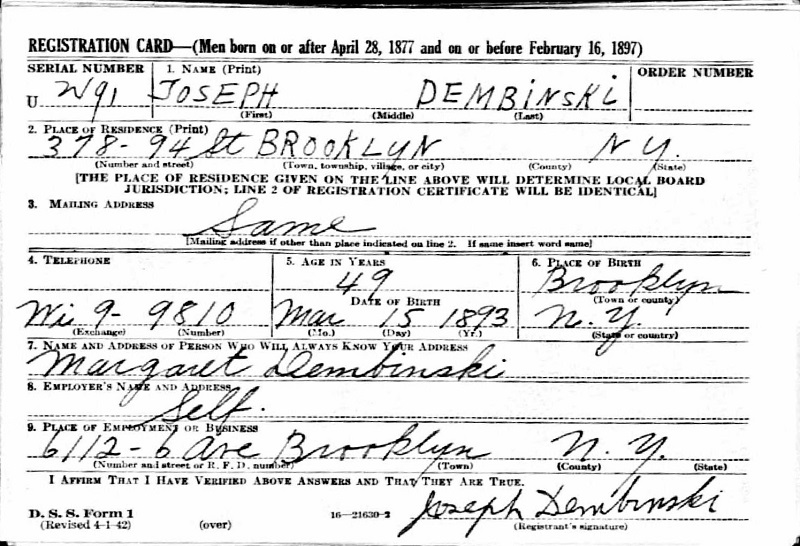 REGISTRATION CARD—(Men born on or after April 28, 1877 and on or before February 16, 1897)
SERIAL NUMBER 1. NAME (Print) ORDER NUMBER
U W91 JOSEPH DEMBINSKI
(First) (Middle) (Last)
2. PLACE OF RESIDENCE (Print)
378-94 St BROOKLYN N Y.
(Number and street) (Town, township, village, or city) (County) (State)
[THE PLACE OF RESIDENCE GIVEN ON THE LINE ABOVE WILL DETERMINE LOCAL BOARD
JURISDICTION; LINE 2 OF REGISTRATION CERTIFICATE WILL BE IDENTICAL]
3. MAILING ADDRESS
Same
[Mailing address if other than place indicated on line 2. If same insert word same]
4. TELEPHONE 5. AGE IN YEARS 6. PLACE OF BIRTH
49 Brooklyn
DATE OF BIRTH (Town or county)
Wi 9-9810 Mar 15 1893 N.Y.
(Exchange) (Number) (Mo.) (Day) (Yr.) (State or country)
7. NAME AND ADDRESS OF PERSON WHO WILL ALWAYS KNOW YOUR ADDRESS
Margaret Dembinski
8. EMPLOYER'S NAME AND ADDRESS
Self.
9. PLACE OF EMPLOYMENT OR BUSINESS
6112-6 Ave Brooklyn N.Y.
(Number and street or R. F. D. number) (Town) (County) (State)
I AFFIRM THAT I HAVE VERIFIED ABOVE ANSWERS AND THAT THEY ARE TRUE.
Joseph Dembinski
D. S. S. Form 1
(Revised 4-1-42) (over) 16—21630-2 (Registrant's signature)